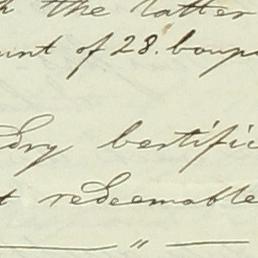 the latter
unt of 28. Coupo
dry Certific
t redeemable
"